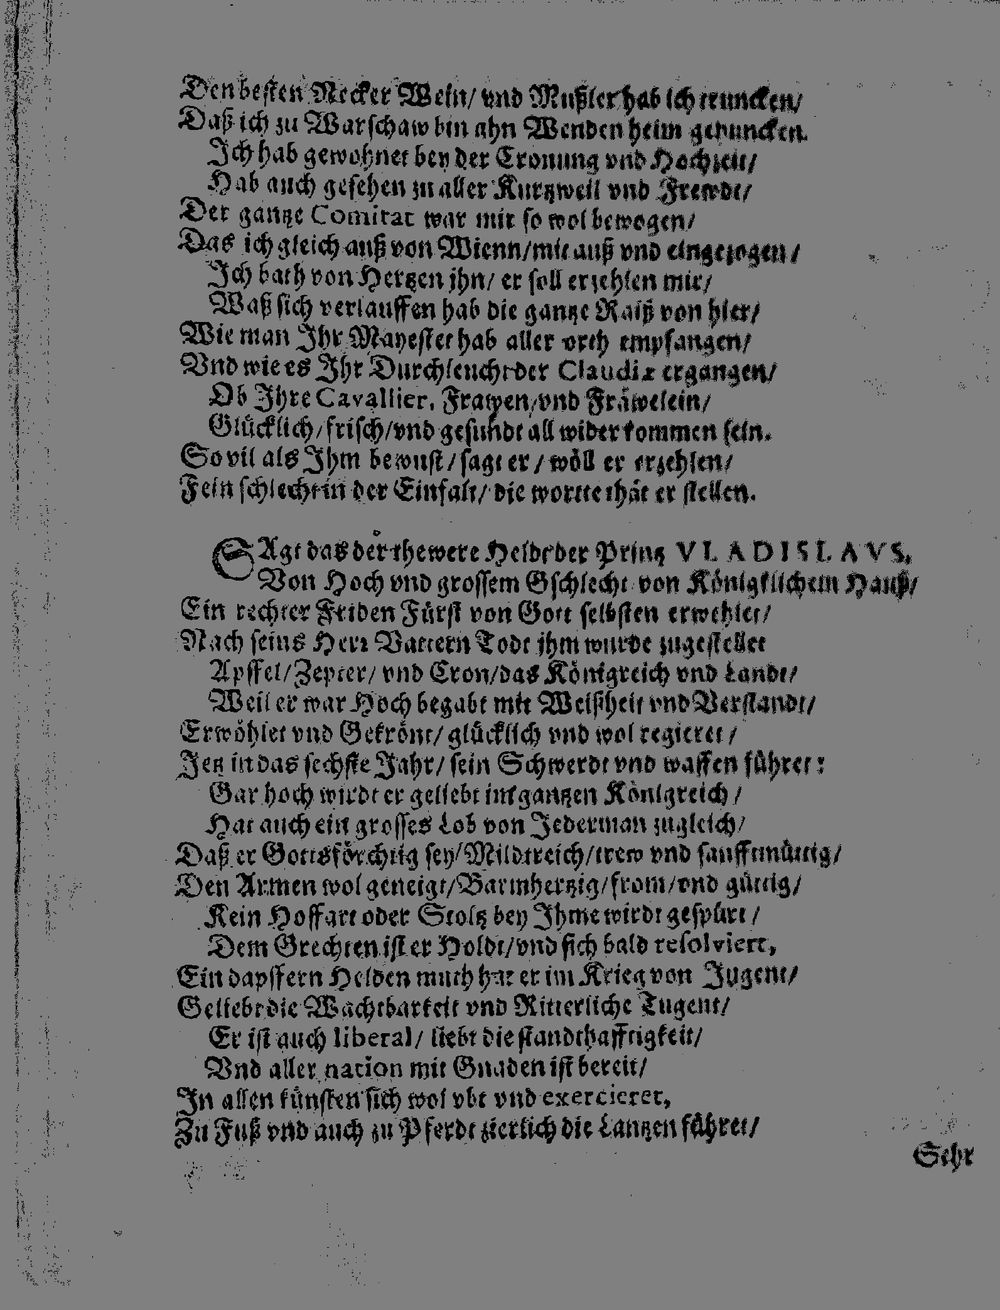 Den besten Necker Wein/ vnd Mußler hab ich truncken/
Daß ich zu Warschaw bin ahn Wenden heim gehuncken.
Ich hab gewohnet bey der Cronung vnd Hochzeit/
Hab auch gesehen zu aller Kurtzweil vnd Frewdt/
Der gantze Comitat war mir so wol bewogen/
Das ich gleich auß von Wienn/mit auß vnd eingezogen/
Ich bath von Hertzen jhn/ er soll erzehlen mir/
Waß sich verlauffen hab die gantze Raiß von hier/
Wie man Ihr Mayestet hab aller orth empfangen/
Vnd wie es Ihr Durchleucht der Claudiæ ergangen/
Ob Ihre Cavallier, Frawen/vnd Fräwelein/
Glücklich/frisch/vnd gesundt all wider kommen sein.
So vil als Ihm bewust/ sagt er/ wöll er erzehlen/
Fein schlecht in der Einfalt/ die wortte thät er stellen.
SAgt das der thewere Heldt der Printz VLADISLAVS,
Von Hoch vnd grossem Gschlecht von Königklichem Hauß/
Ein rechter Friden Fürst von Gott selbsten erwehlet/
Nach seins Herr Vattern Todt jhm wurde zugestellet
Apffel/Zepter/ vnd Cron/das Königreich vnd Landt/
Weil er war Hoch begabt mit Weißheit vnd Verstandt/
Erwöhlet vnd Gekrönt/ glücklich vnd wol regieret/
Jetz in das sechste Jahr/ sein Schwerdt vnd waffen führet:
Gar hoch wirdt er geliebt im gantzen Königreich/
Hat auch ein grosses Lob von Jederman zugleich/
Daß er Gottsförchtig sey/Mildtreich/trew vnd sanfftmüttig/
Den Armen wol geneigt/Barmhertzig/from/vnd güttig/
Kein Hoffart oder Stoltz bey Ihme wirdt gespürt/
Dem Grechten ist er Holdt/vnd sich bald resolviert,
Ein dapffern Helden muth hat er im Krieg von Jugent/
Geliebt die Wachtbarkeit vnd Ritterliche Tugent/
Er ist auch liberal/ liebt die standthafftigkeit/
Vnd aller nation mit Gnaden ist bereit/
In allen künsten sich wol vbt vnd exercieret,
Zu Fuß vnd auch zu Pferdt zierlich die Lantzen führet/
Sehr